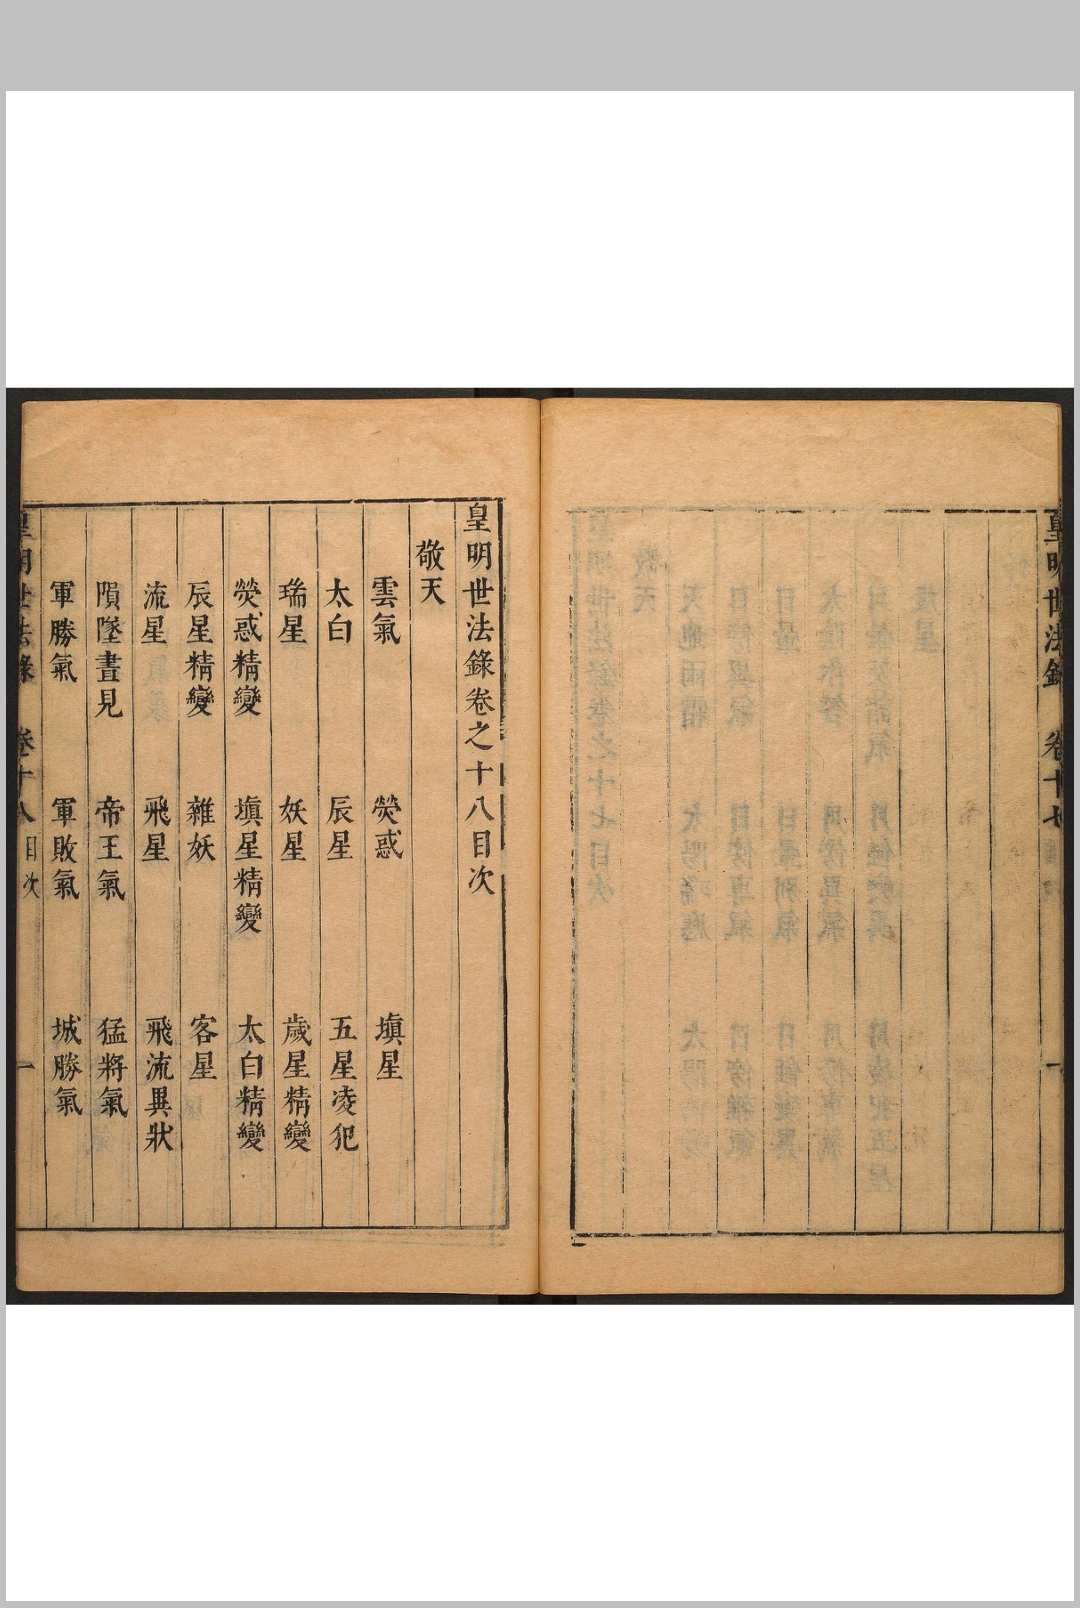 皇明世法錄 卷十七 一
皇明世法錄卷之十八目次
敬天
雲氣 熒惑 塡星
太白 辰星 五星凌犯
瑞星 妖星 歲星精變
熒惑精變 塡星精變 太白精變
辰星精變 雜妖 客星
流星 飛星 飛流異狀
隕墜晝見 帝王氣 猛將氣
軍勝氣 軍敗氣 城勝氣
皇明世法錄 卷十八 目次 一